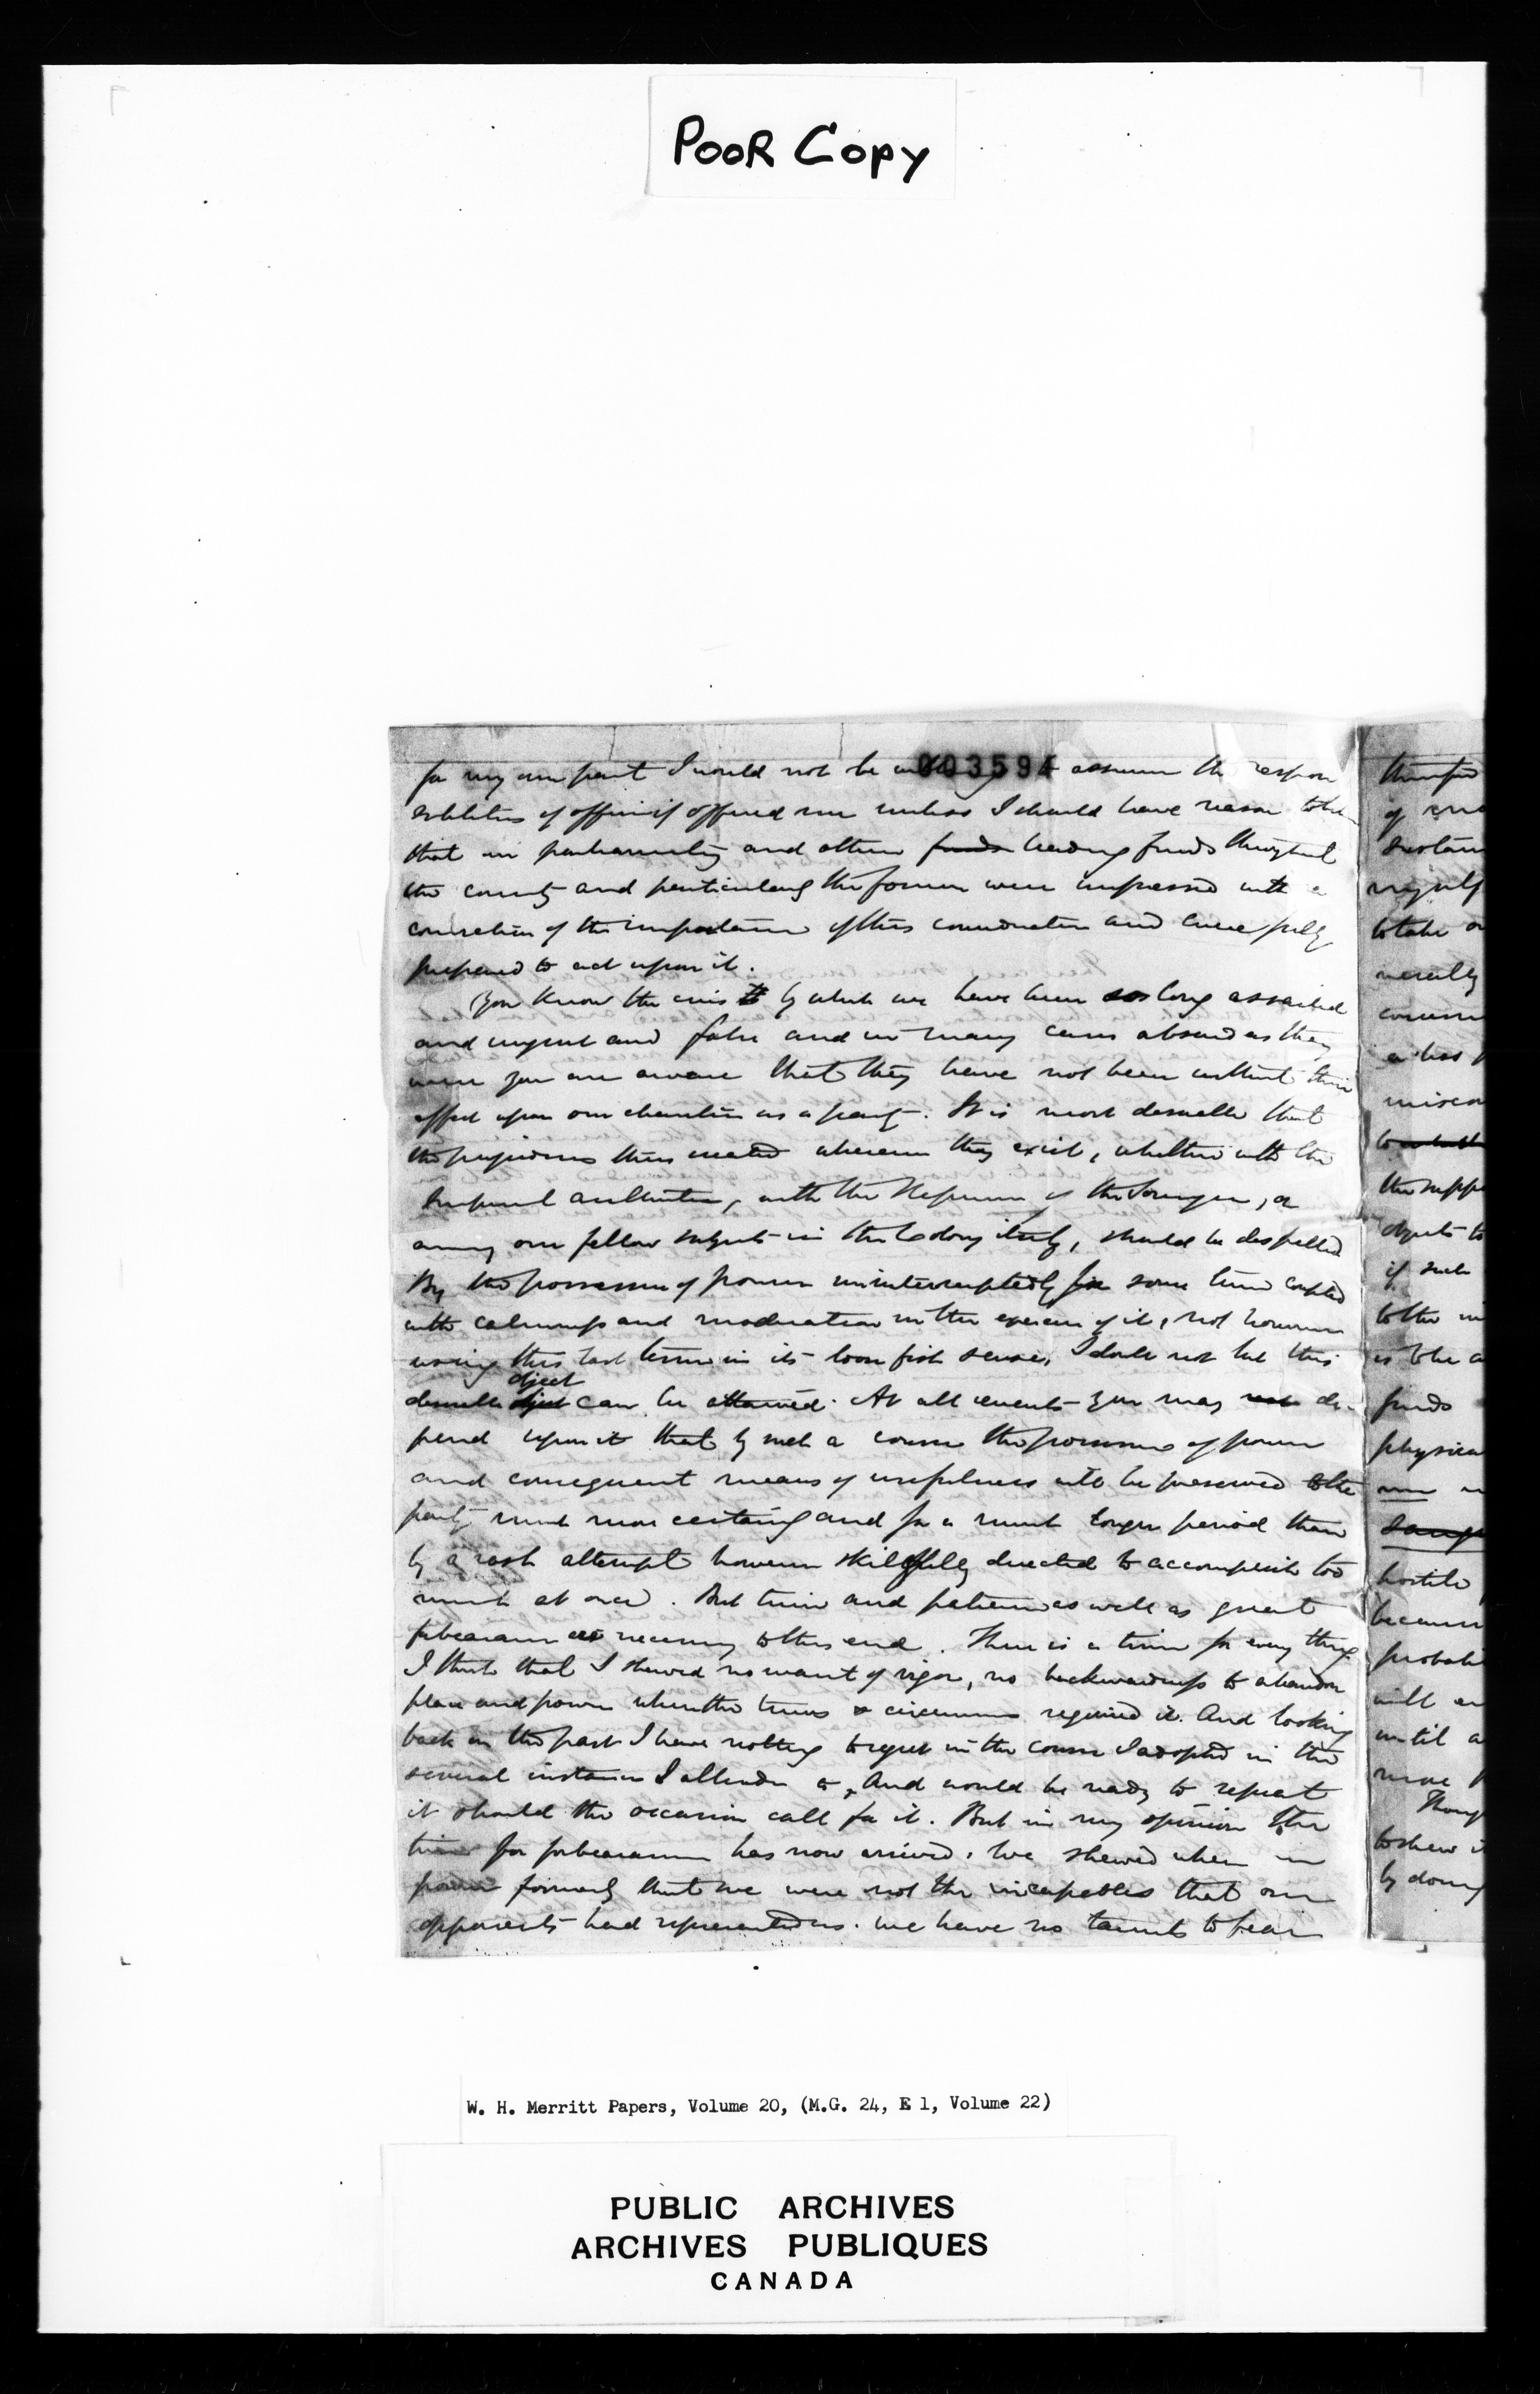 POOR COPY
003594
for my own part I would not be assume the respon
sibilities of office if offered me unless I should have reason
that our parliamentary and other friends leading friends throughout
the country and particularly the former were impressed with a
conviction of the importance of this consideration and were fully
prepared to act upon it.
You know the by which we have been so long assailed
and unjust and false and in many cases absurd as they
were you are aware that they have not been without their
effect upon our character as a party. It is most desirable that
the prejudices thus created wherever they exist, whether with the
Imperial authorities, with the of the Sovereign, or
among our fellow subjects in the Colony itself, should be dispelled
By the possession of power uninterruptedly for some time coupled
with calmness and moderation in the exercise of it, not however
using this last term in its sense, I doubt not but this
object
desirable object can be attained. At all events you may rest de-
pend upon it that by such a course the possession of power
and consequent means of usefulness will be preserved to the
party much more certainly and for a much longer period than
by a rash attempt however skilfully directed to accomplish too
much at once. But time and patience as well as great
forbearance are necessary to this end. There is a time for every thing
I think that I shewed no want of vigor, no backwardness to abandon
place and power when the times & circumstances required it. And looking
back on the past I have nothing to regret in the course I adopted in the
several instances I allude to, And would be ready to repeat
it should the occasion call for it. But in my opinion the
time for forbearance has now arrived. We shewed when in
power formerly that we were not the incapables that our
opponents had represented us. We have no taunts to fear
of
sustain
myself
to take
merely
a less
to
the suppo
objects to
if such
to the
is to be a
friends
physica
hostile
because
probabl
will
until a
more
Thoug
to shew it
by doing
W. H. Merritt Papers, Volume 20, (M.G. 24, E 1, Volume 22)
PUBLIC ARCHIVES
ARCHIVES PUBLIQUES
CANADA